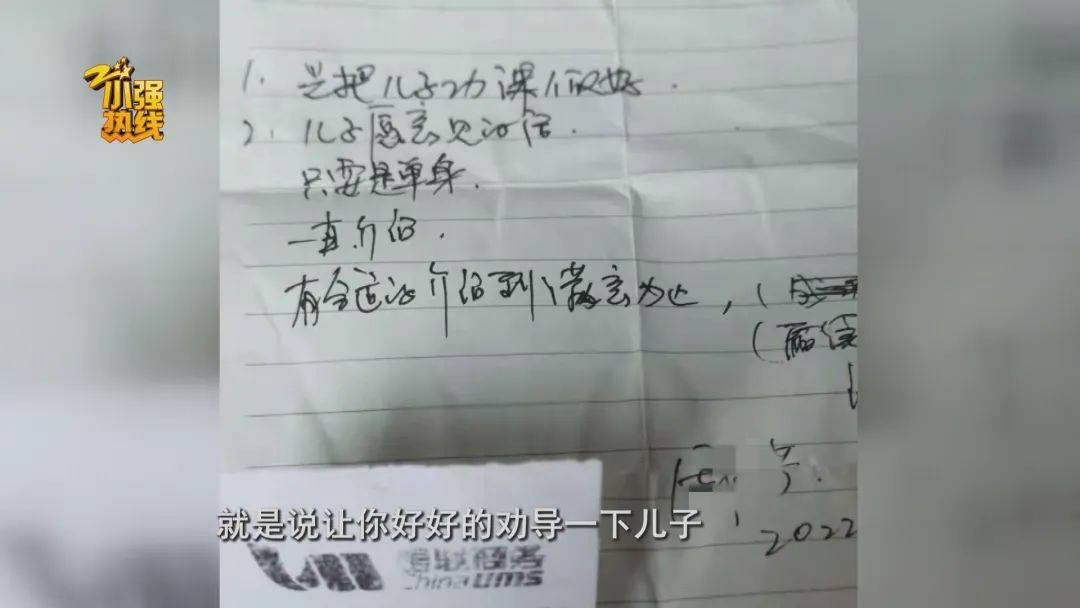 小强
热线
1. 先把儿子功课做好.
2. 儿子愿意见的话.
只要是单身.
一直介绍.
有合适的介绍到满意为止,
2022
就是说让你好好的劝导一下儿子
银联商务
China ums